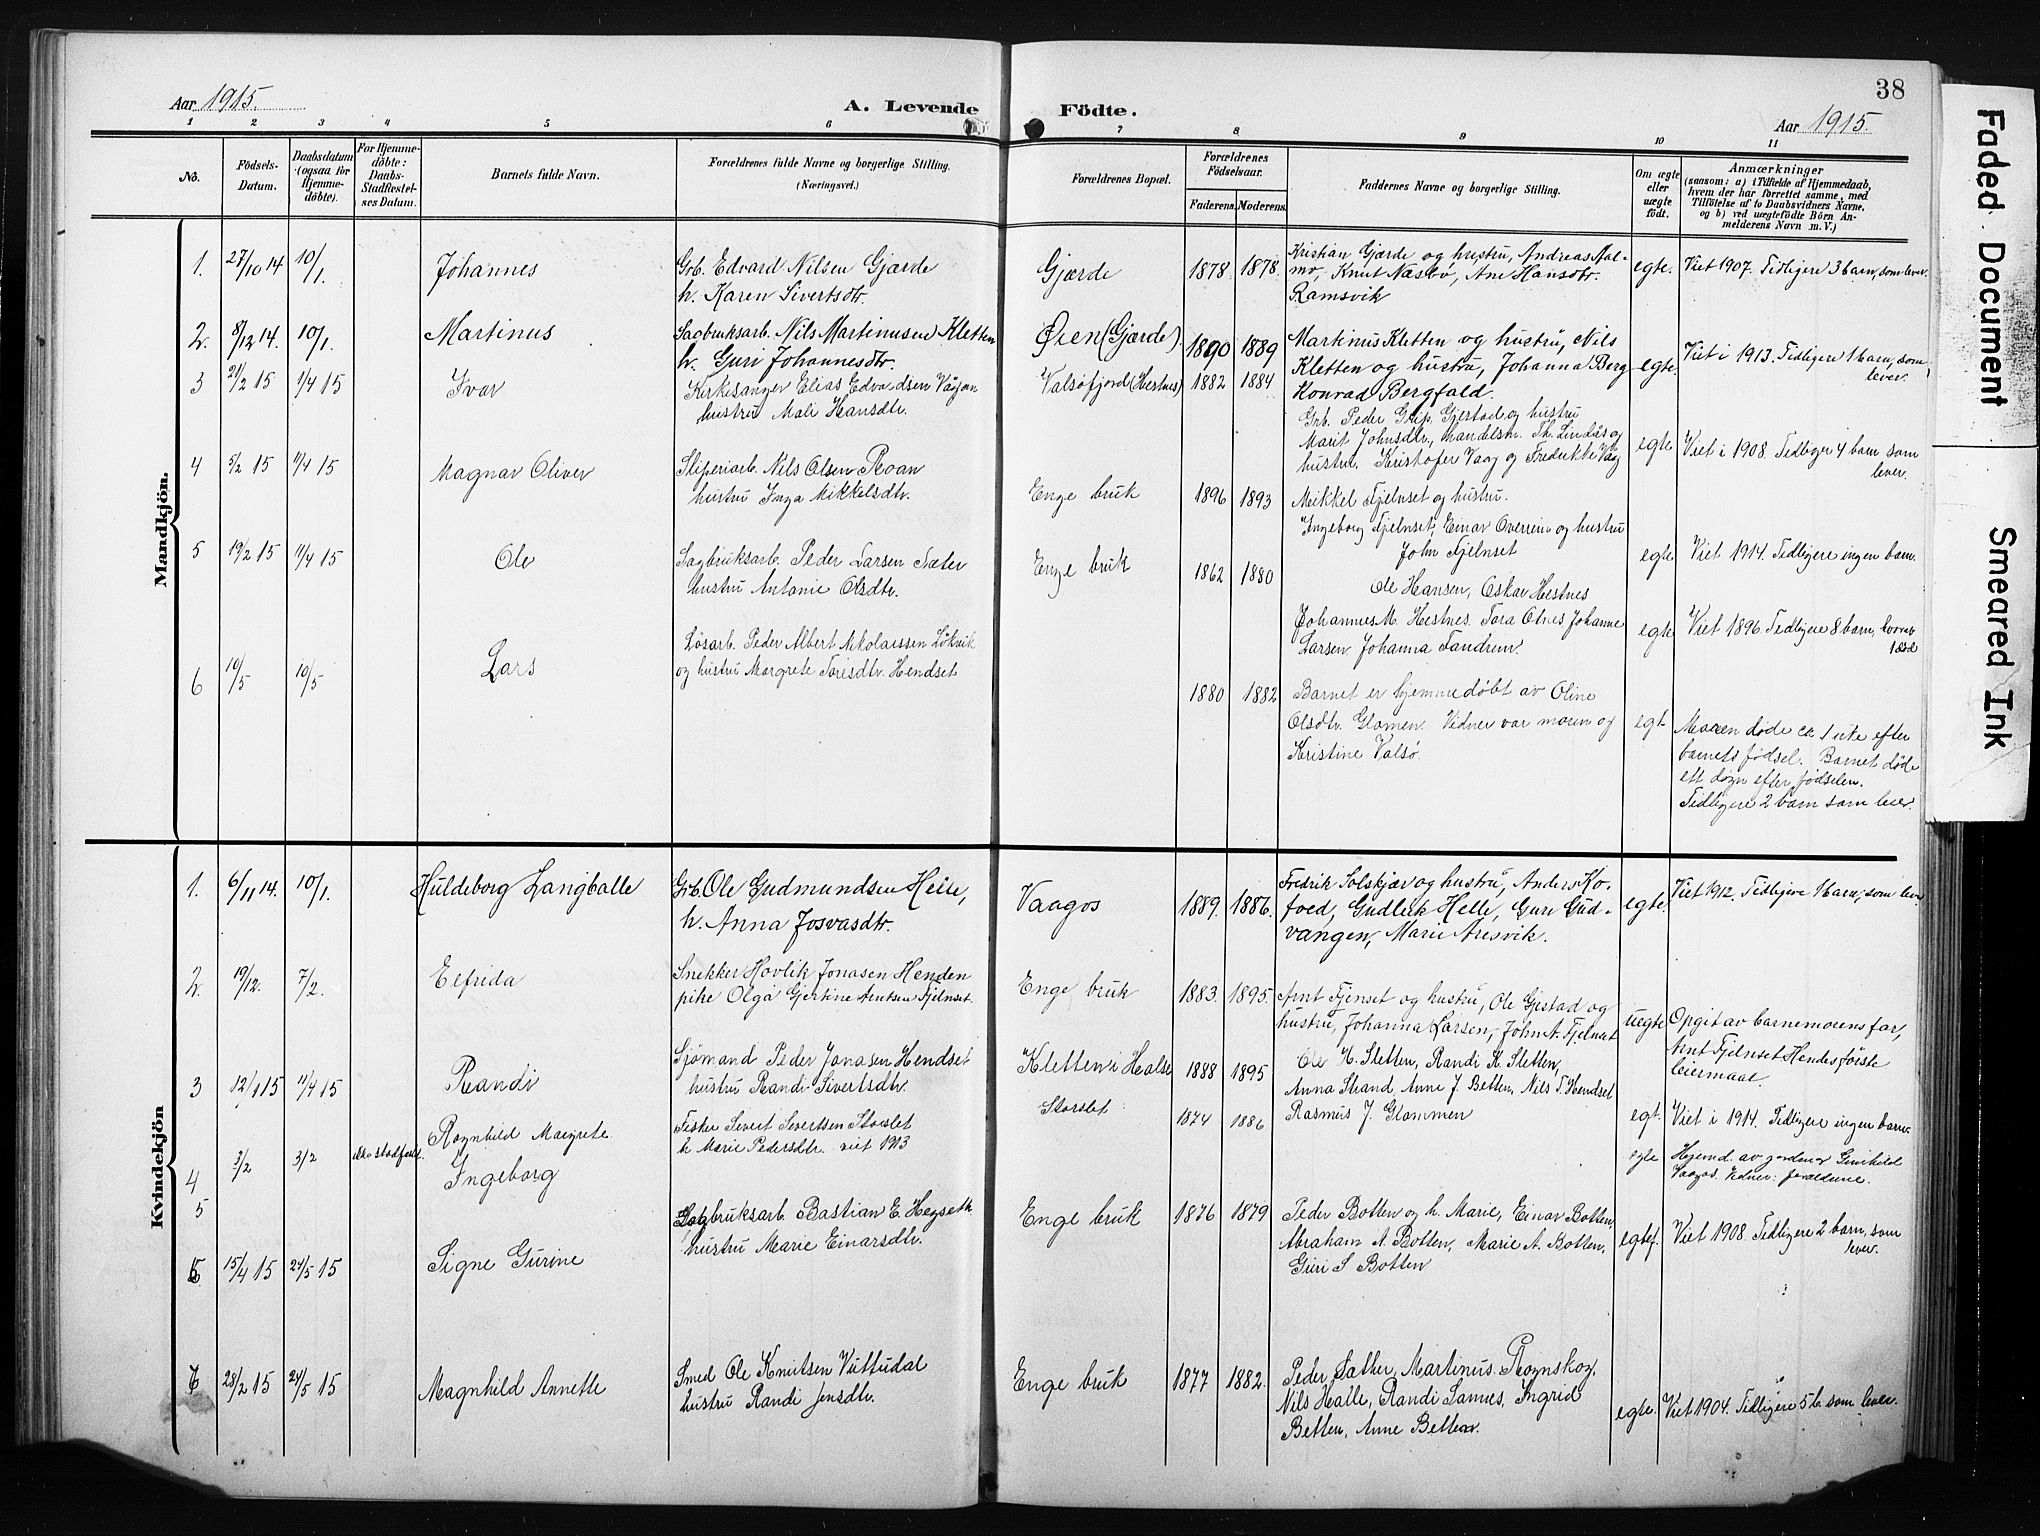 38
Aar 1915.
A. Levende Födte.
Aar 1915.
1 2 3 4 5 6 7 8 9 10 11
No.
Födsels-
Datum.
Daabsdatum
(ogsaa for
Hjemme-
döbte).
For Hjemme-
döbte:
Daabs-
Stadfæstel-
ses Datum.
Barnets fulde Navn.
Forældrenes fulde Navne og borgerlige Stilling.
(Næringsvei.)
Forældrenes Bopæl.
Forældrenes
Födselsaar.
Faderens. Moderens.
Faddernes Navne og borgerlige Stilling.
Om ægte
eller
uægte
födt.
Anmærkninger
(saasom: a) i Tilfælde af Hjemmedaab,
hvem der har forrettet samme, med
Tilföielse af to Daabsvidners Navne,
og b) ved uægtefödte Börn An-
melderens Navn m. V.)
Mandkjön.
1. 27/10 14 10/1. Johannes
Grb. Edvard Nilsen Gjærde
h. Karen Sivertsdtr.
Gjærde 1878. 1878.
Kristian Gjærde og hustru, Andreas Aal-
mo, Knut Næsbø, Ane Hansdtr.
Ramsvik
egte. Viet 1907. Tidligere 3 barn, som lever.
2. 8/12 14. 10/1. Martinus
Sagbruksarb. Nils Martinusen Kletten
h. Guri Johannesdtr.
Øien (Gjærde). 1890 1889
Martinus Kletten og hustru, Nils
Kletten og hustru, Johanna Berg
Konrad Bergfald.
egte. Viet i 1913. Tidligere 1 barn, som
lever.
3 21/2 15 11/4 15 Ivar
Kirkesanger Elias Edvardsen Vågan
hustru Mali Hansdtr.
Valsøfjord (Hestnes) 1882 1884
Grb. Peder Grip, Gjerstad og hustru
Marit Johnsdtr., handelsm. Th. Lindås og
hustru. Kristofer Vaag og Fredrikke Vaag
egte Viet i 1908. Tidligere 4 barn som
lever.
4 5/2 15 11/4 15 Magnar Oliver
Sliperiarb. Nils Olsen Roan
hustru Inga Mikkelsdtr.
Enge bruk 1896 1893
Mikkel Fjelnset og hustru.
Ingeborg Fjelnset, Einar Overrein og hustru
John Fjelnset
egte Viet 1914. Tidligere ingen barn.
5 19/2 15 11/4 15 Ole
Sagbruksarb. Peder Larsen Sæter
hustru Antonie Olsdtr.
Enge bruk 1862 1880
Ole Hansen, Oskar Hestnes
Johannes M. Hestnes. Tora Olnes Johanne
Larsen Johanna Sandrem.
egte Viet 1896. Tidligere 8 barn, hvorav
1 død
6 10/5 10/5 Lars
Løsarb. Peder Albert Nikolaissen Løkvik
og hustru Margrete Toresdtr. Hendset
1880 1882
Barnet er hjemmedøbt av Oline
Olsdtr. Glamen. Vidner var moren og
Kristine Valsø.
egt. Moren døde ca 1 uke efter
barnets fødsel. Barnet døde
ett døgn efter fødselen.
Tidligere 2 barn som lever.
Kvindekjön
1. 6/11 14. 10/1. Huldeborg Langballe
Grb. Ole Gudmundsen Helle,
h. Anna Josvasdtr.
Vaagos 1889. 1886.
Fredrik Solskjær og hustru, Anders Ko-
foed, Gudleik Helle, Guri Gud-
vangen, Marie Aresvik.
egte. Viet 1912. Tidligere 1 barn, som lever
2. 19/12. 7/2. Elfrida
Snekker Hovlik Jonasen Henden
pike Olga Gjertine Arntsen Fjelnset.
Enge bruk 1883. 1895.
Arnt Fjenset og hustru, Ole Gjestad og
hustru, Johanna Larsen, John A. Fjelnset
uegte Opgit av barnemorens far,
Arnt Fjelnset Hendes første
leiermaal.
3 12/1 15 11/4 15 Randi
Sjømand Peder Jonasen Hendset
hustru Randi Sivertsdtr.
Kletten i Halse 1888 1895
Ole H. Sletten, Randi K. Sletten,
Anna Strand, Anne J. Betten, Nils T. Hendset
Rasmus J. Glammen
egt. Viet i 1914. Tidligere ingen barn.
4 3/2 3/2 Ragnhild Margrete
Ingeborg
Fisker Sivert Sivertsen Storslet
h Marie Pedersdtr. viet 1913
Storslet 1874 1886
egte Hjemd. av jordmor Gunhild
Vaagos. Vidner: forældrene.
5
5 15/4 15 24/5 15 Signe Gurine
Sagbruksarb Bastian E. Hegseth
hustru Marie Einarsdtr.
Enge bruk 1876 1879
Peder Botten og h. Marie, Einar Botten,
Abraham A. Botten, Marie A. Botten,
Guri S Botten
egtef. Viet 1908. Tidligere 2 barn, som
lever.
6 28/2 15 24/5 15 Magnhild Annette
Smed Ole Knutsen Vuttudal
hustru Randi Jensdtr.
Enge bruk 1877 1882.
Peder Sæther, Martinus Rognskog,
Nils Halle, Randi Sannes, Ingrid
Betten, Anne Betten.
egte. Viet 1904. Tidligere 5 b. som lever.
Faded Document
Smeared Ink